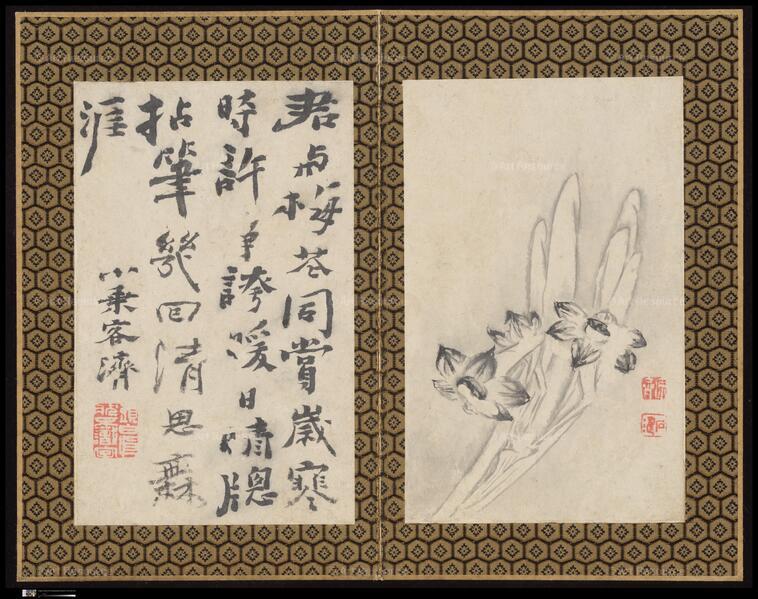 君与梅花同賞歲寒
時許爭誇暖日晴牕
拈筆幾回清思無
涯
小乘客濟